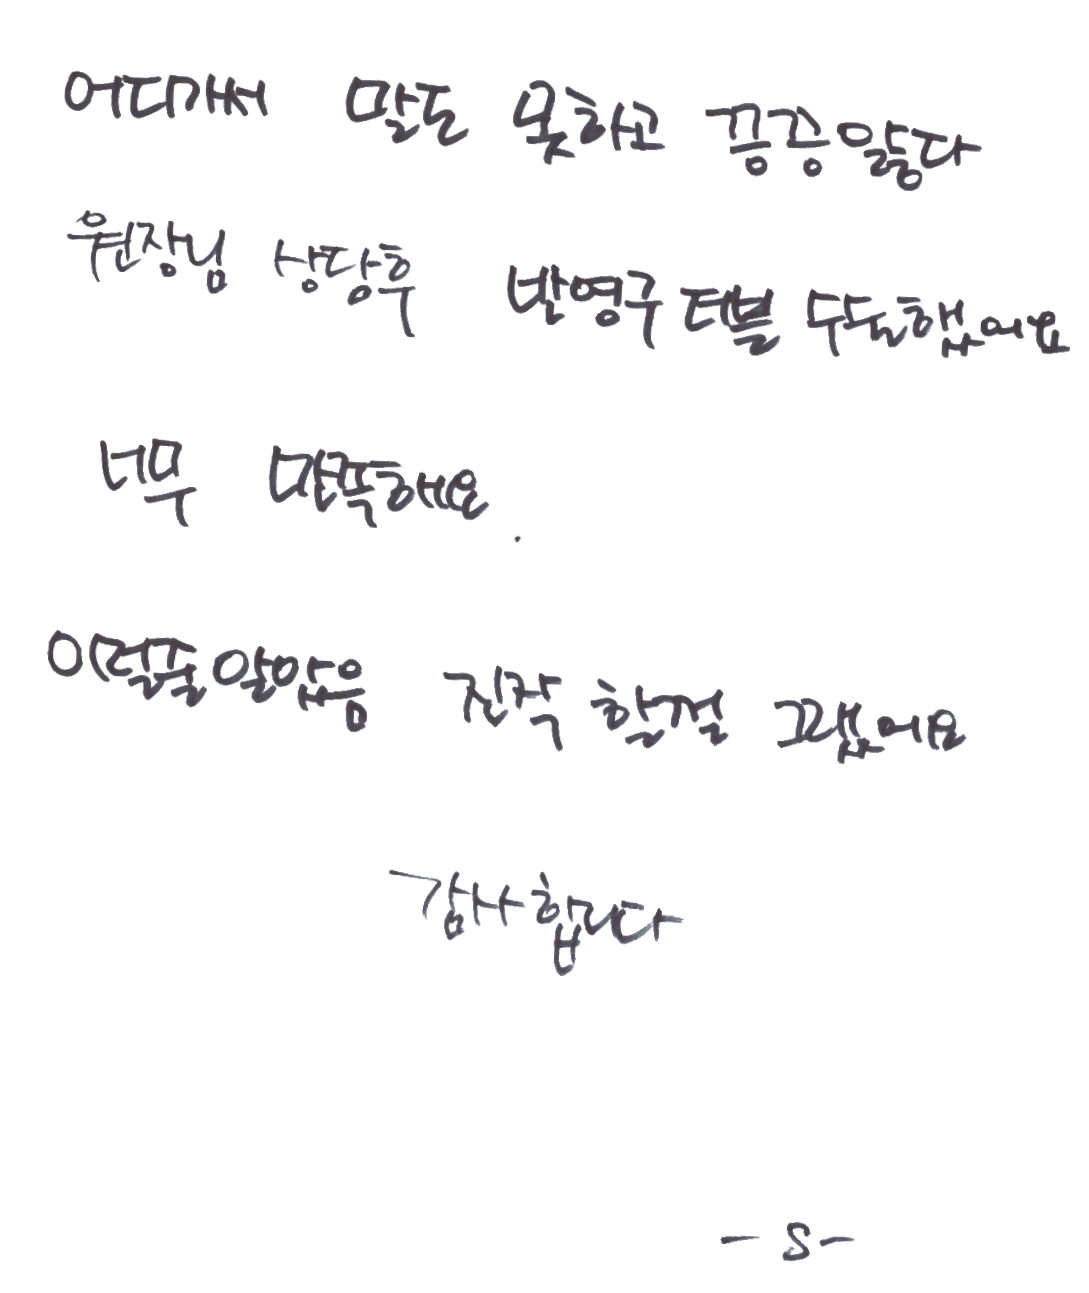 어디가서 말도 못하고 끙끙앓다
원장님 상담후 반영구 더블 두둑했어요
너무 만족해요.
이럴줄 알았음 진작 할걸 그랬어요
감사합니다
- S -